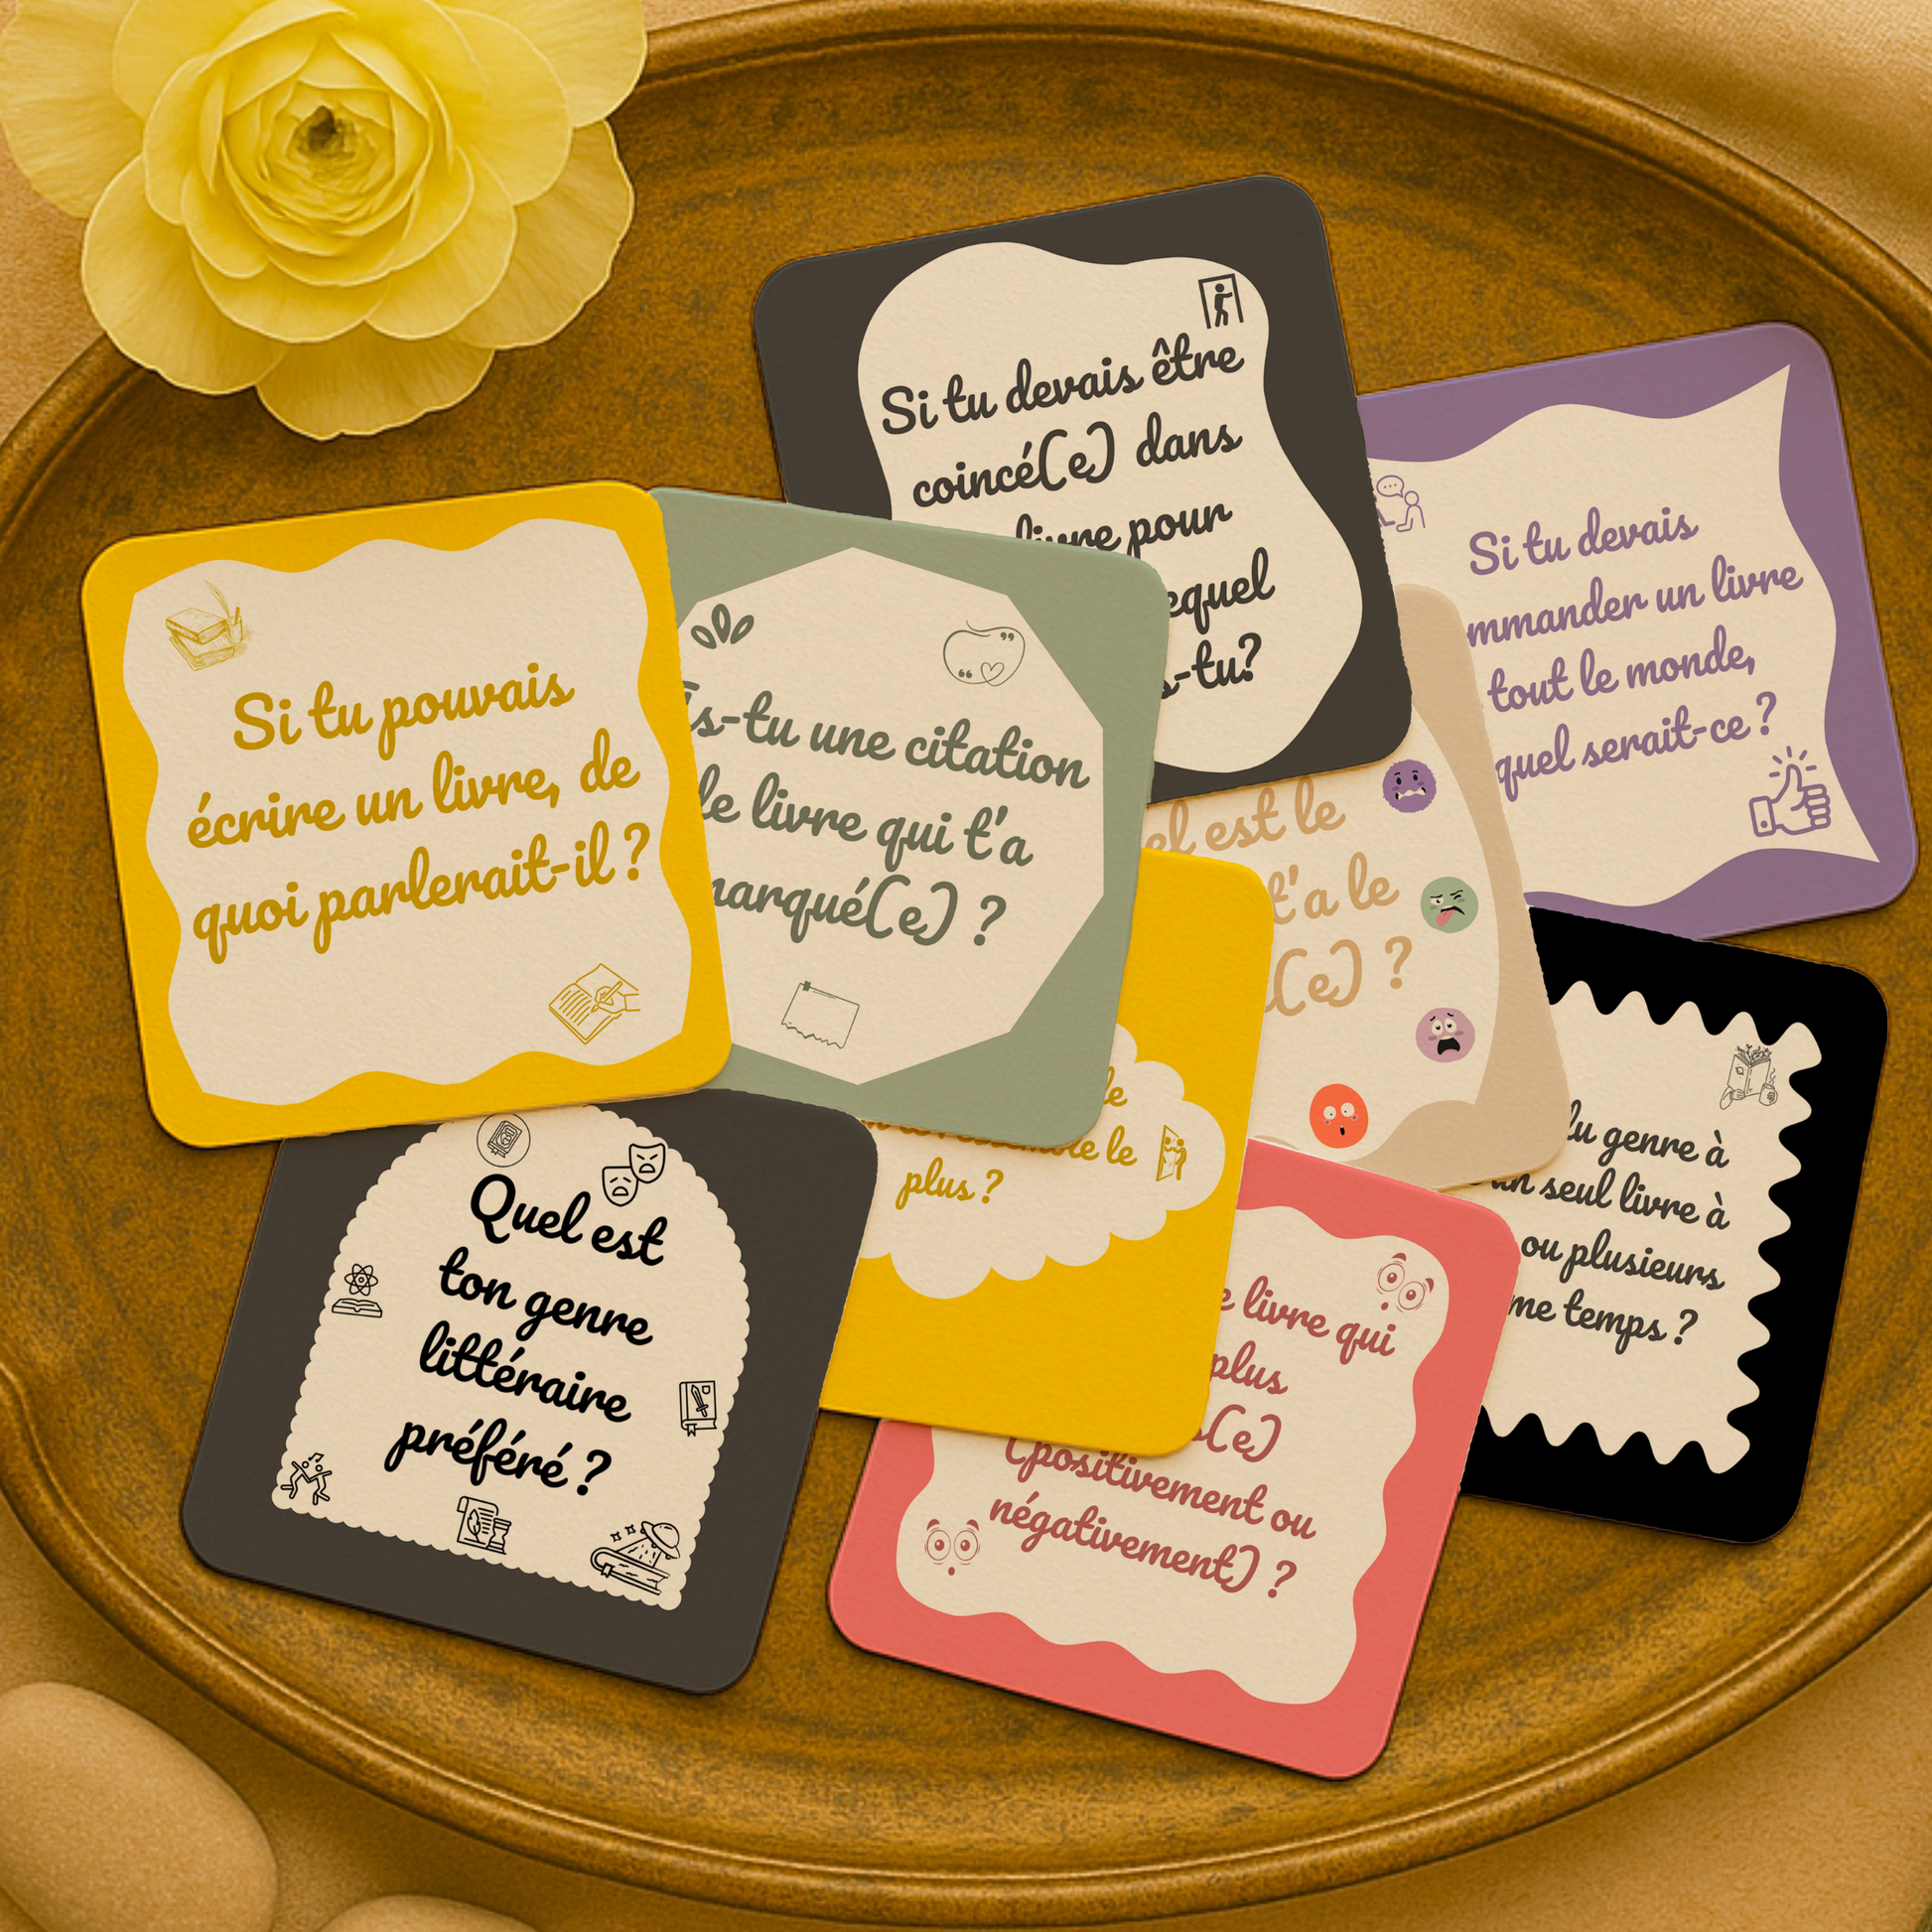 Si tu devais être
coincé(e) dans
livre pour
equel
s-tu?
Si tu devais
mmander un livre
tout le monde,
quel serait-ce ?
Si tu pouvais
écrire un livre, de
quoi parlerait-il ?
As-tu une citation
de livre qui t'a
marqué(e) ?
el est le
t'a le
(e) ?
le
le
plus ?
lu genre à
un seul livre à
ou plusieurs
me temps ?
Quel est
ton genre
littéraire
préféré ?
e livre qui
plus
s(e)
(positivement ou
négativement) ?